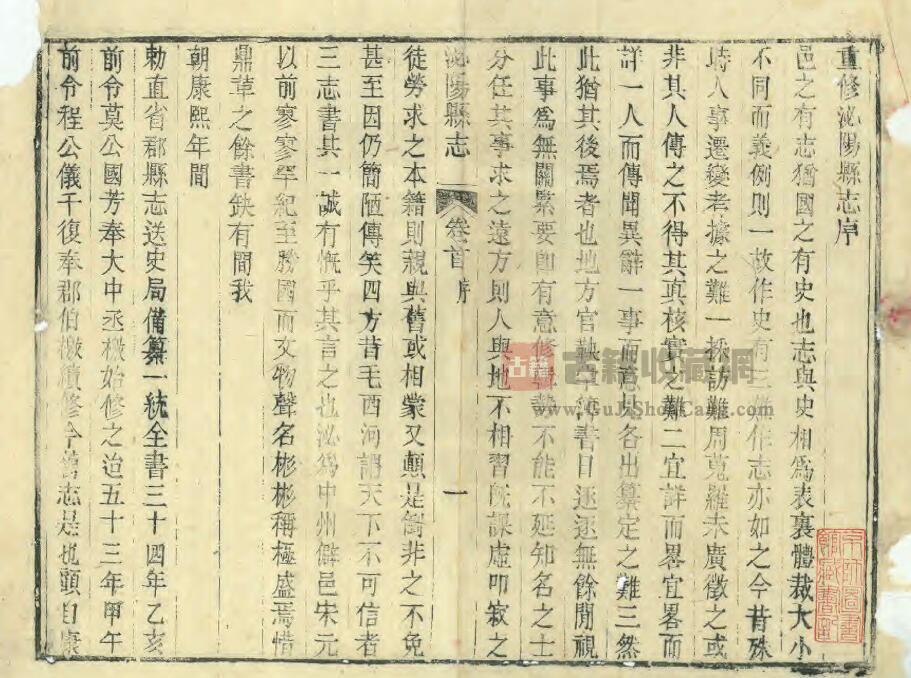 重修泌陽縣志序
邑之有志猶國之有史也志與史相爲表裏體裁大小
不同而義例則一故作史有三難作志亦如之今昔殊
時人事遷變考據之難一採訪難周蒐羅未廣徵之或
非其人傳之不得其真核實之難二宜詳而畧宜畧而
詳一人而傳聞異辭一事而意見各出纂定之難三然
此猶其後焉者也地方官執掌簿書日逐逐無餘閒視
此事爲無關緊要卽有意修輯勢不能不延知名之士
分任其事求之遠方則人與地不相習旣課虛叩寂之
泌陽縣志 卷首 序 一
徒勞求之本籍則親與舊或相蒙又顛是倒非之不免
甚至因仍簡陋傳笑四方昔毛西河謂天下不可信者
三志書其一誠有慨乎其言之也泌爲中州僻邑宋元
以前寥寥罕紀至勝國而文物聲名彬彬稱極盛焉惜
鼎革之餘書缺有間我
朝康熙年間
勅直省郡縣志送史局備纂一統全書三十四年乙亥
前令莫公國芳奉大中丞檄始修之迨五十三年甲午
前令程公儀千復奉郡伯檄續修今舊志是也顧自康
古籍
古籍收藏網
www.GuJiShouCang.com